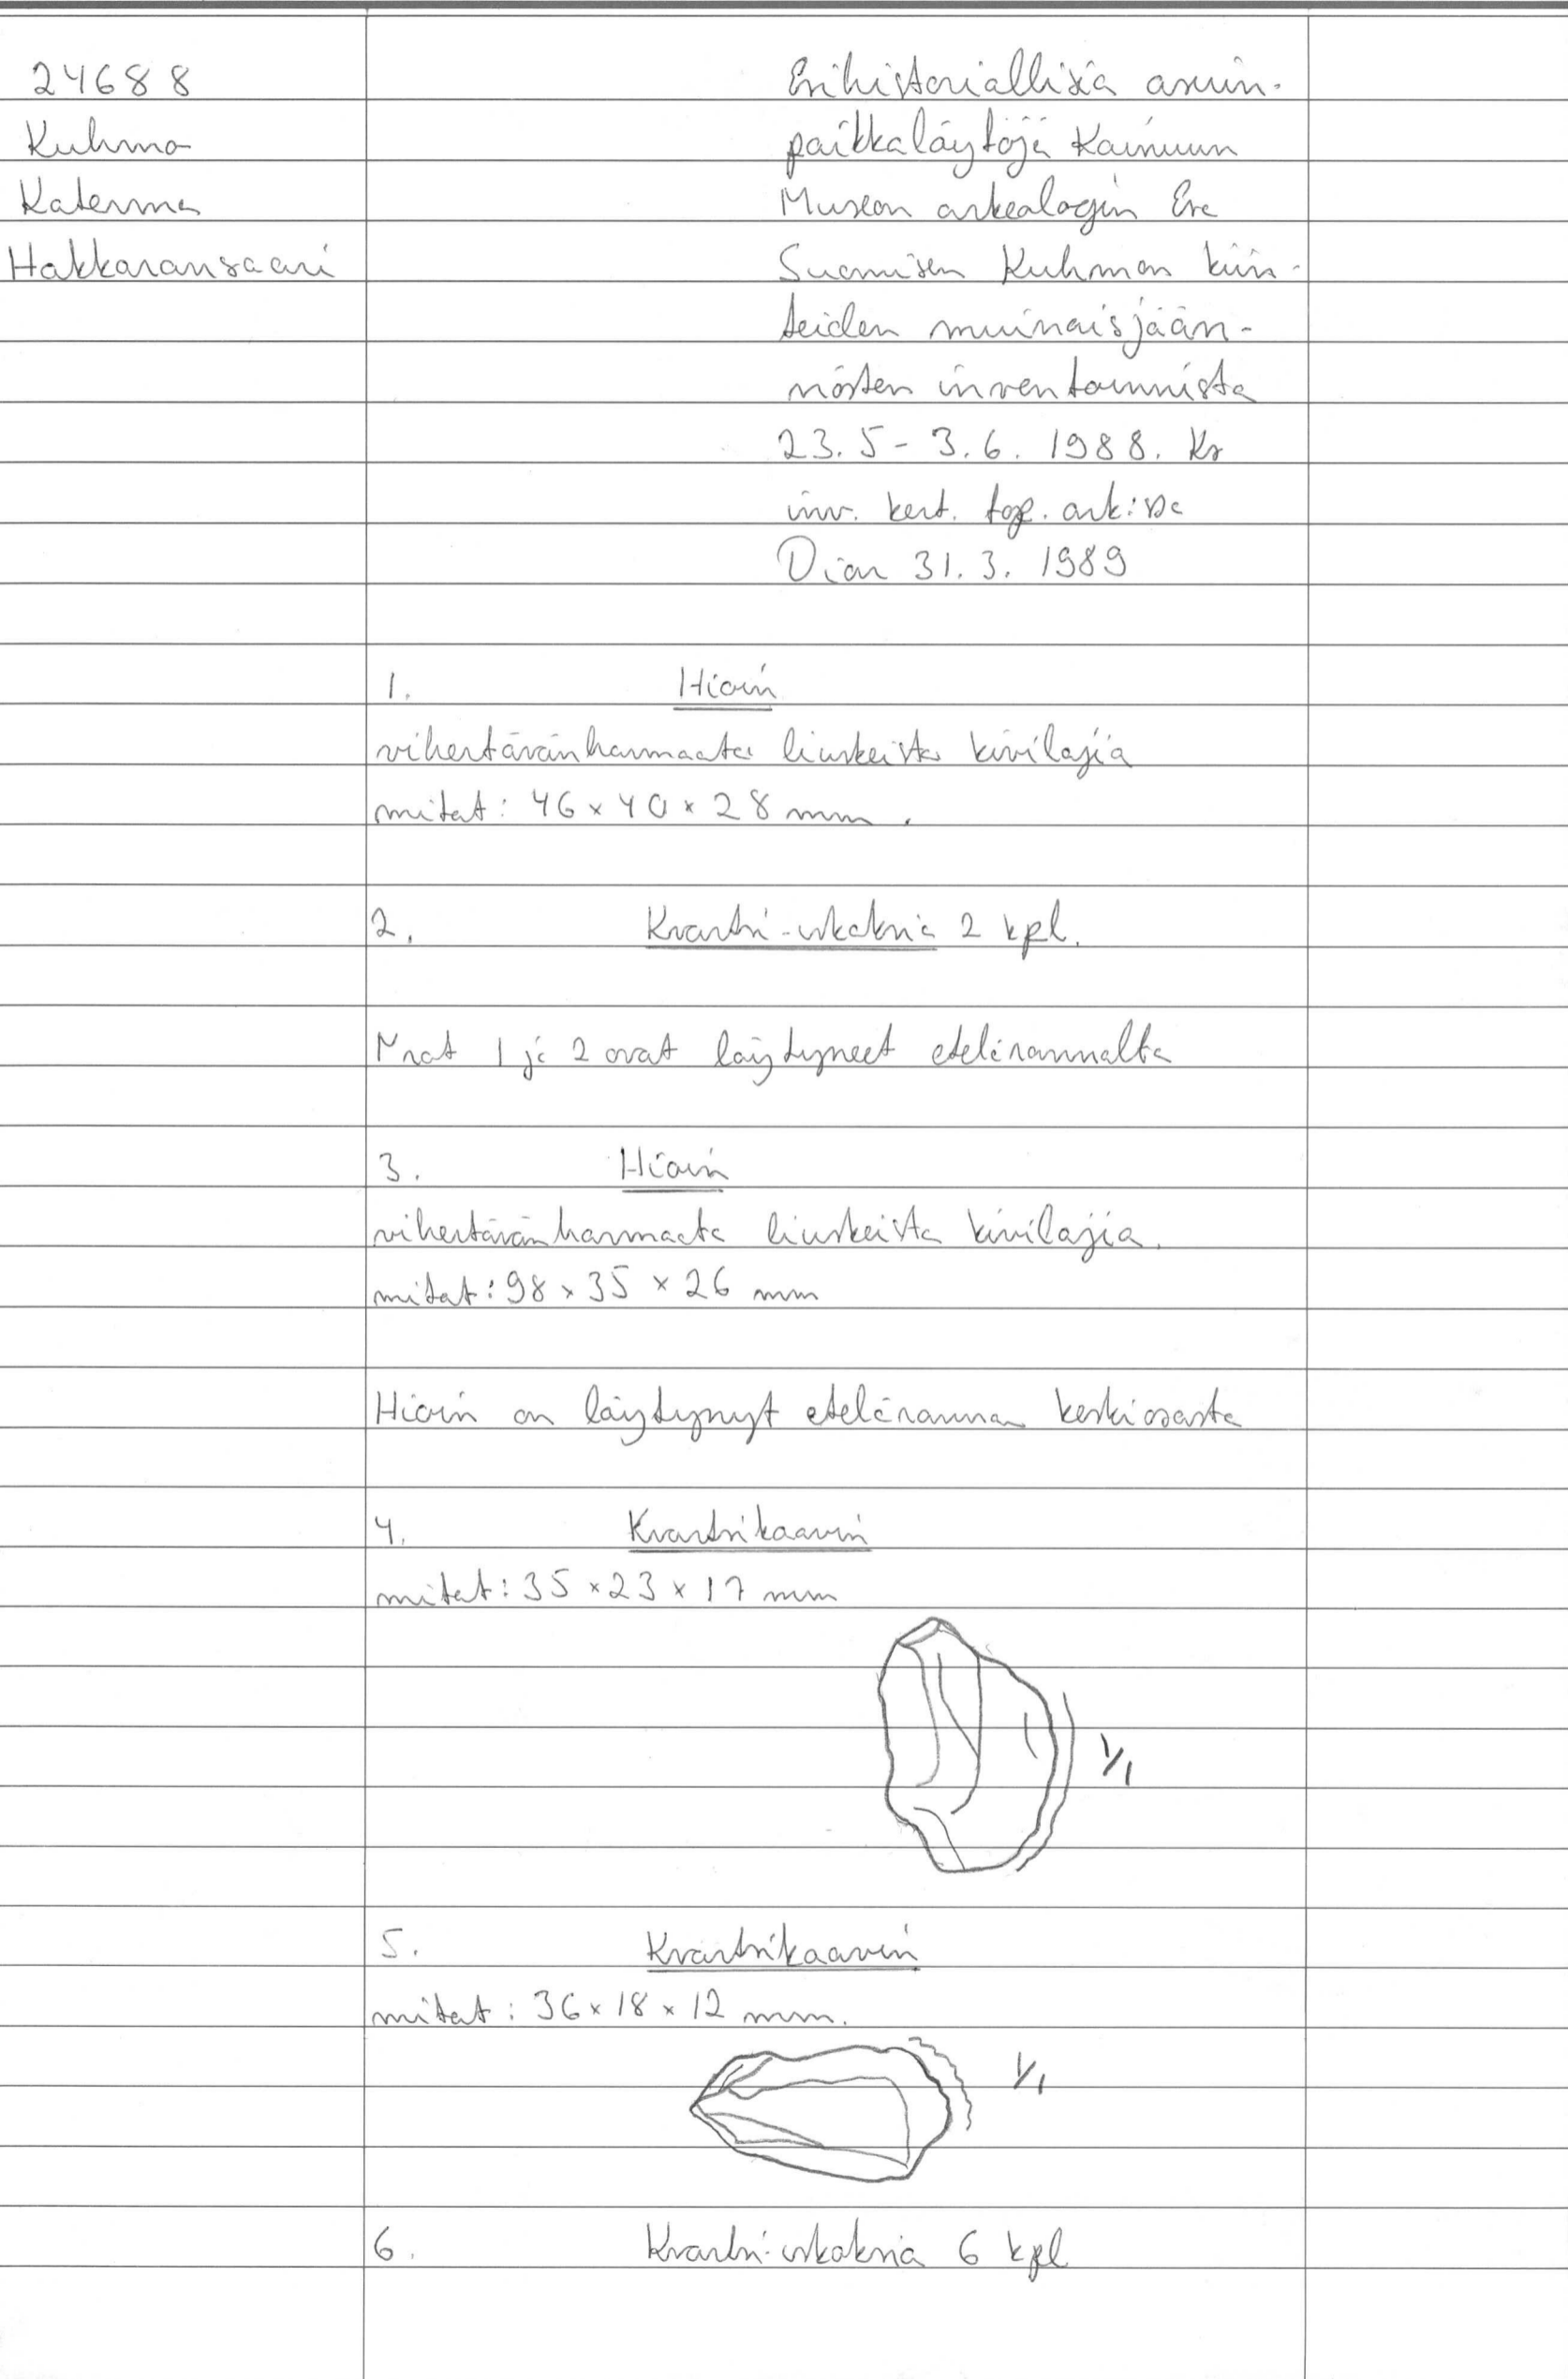 24688
Kuhmo
Katerma
Hakkaransaari
Esihistoriallisia asuin-
paikkalöytöjä Kainuun
Museon arkeologin Esa
Suomisen Kuhmon kiin-
teiden muinaisjään-
nösten inventoinnista
23.5 - 3.6. 1988. Ks
inv. kert. top. ark:ssa
Dian 31.3. 1989
1. Hioin
vihertävänharmaata liuskeista kivilajia
mitat: 46 x 40 x 28 mm.
2. Kvartsi-iskoksia 2 kpl.
Nrot 1 ja 2 ovat löytyneet etelärannalta
3. Hioin
vihertävänharmaata liuskeista kivilajia.
mitat: 98 x 35 x 26 mm
Hioin on löytynyt etelärannan keskiosasta
4. Kvartsikaavin
mitat: 35 x 23 x 17 mm
1/1
5. Kvartsikaavin
mitat: 36 x 18 x 12 mm.
1/1
6. Kvartsi-iskoksia 6 kpl